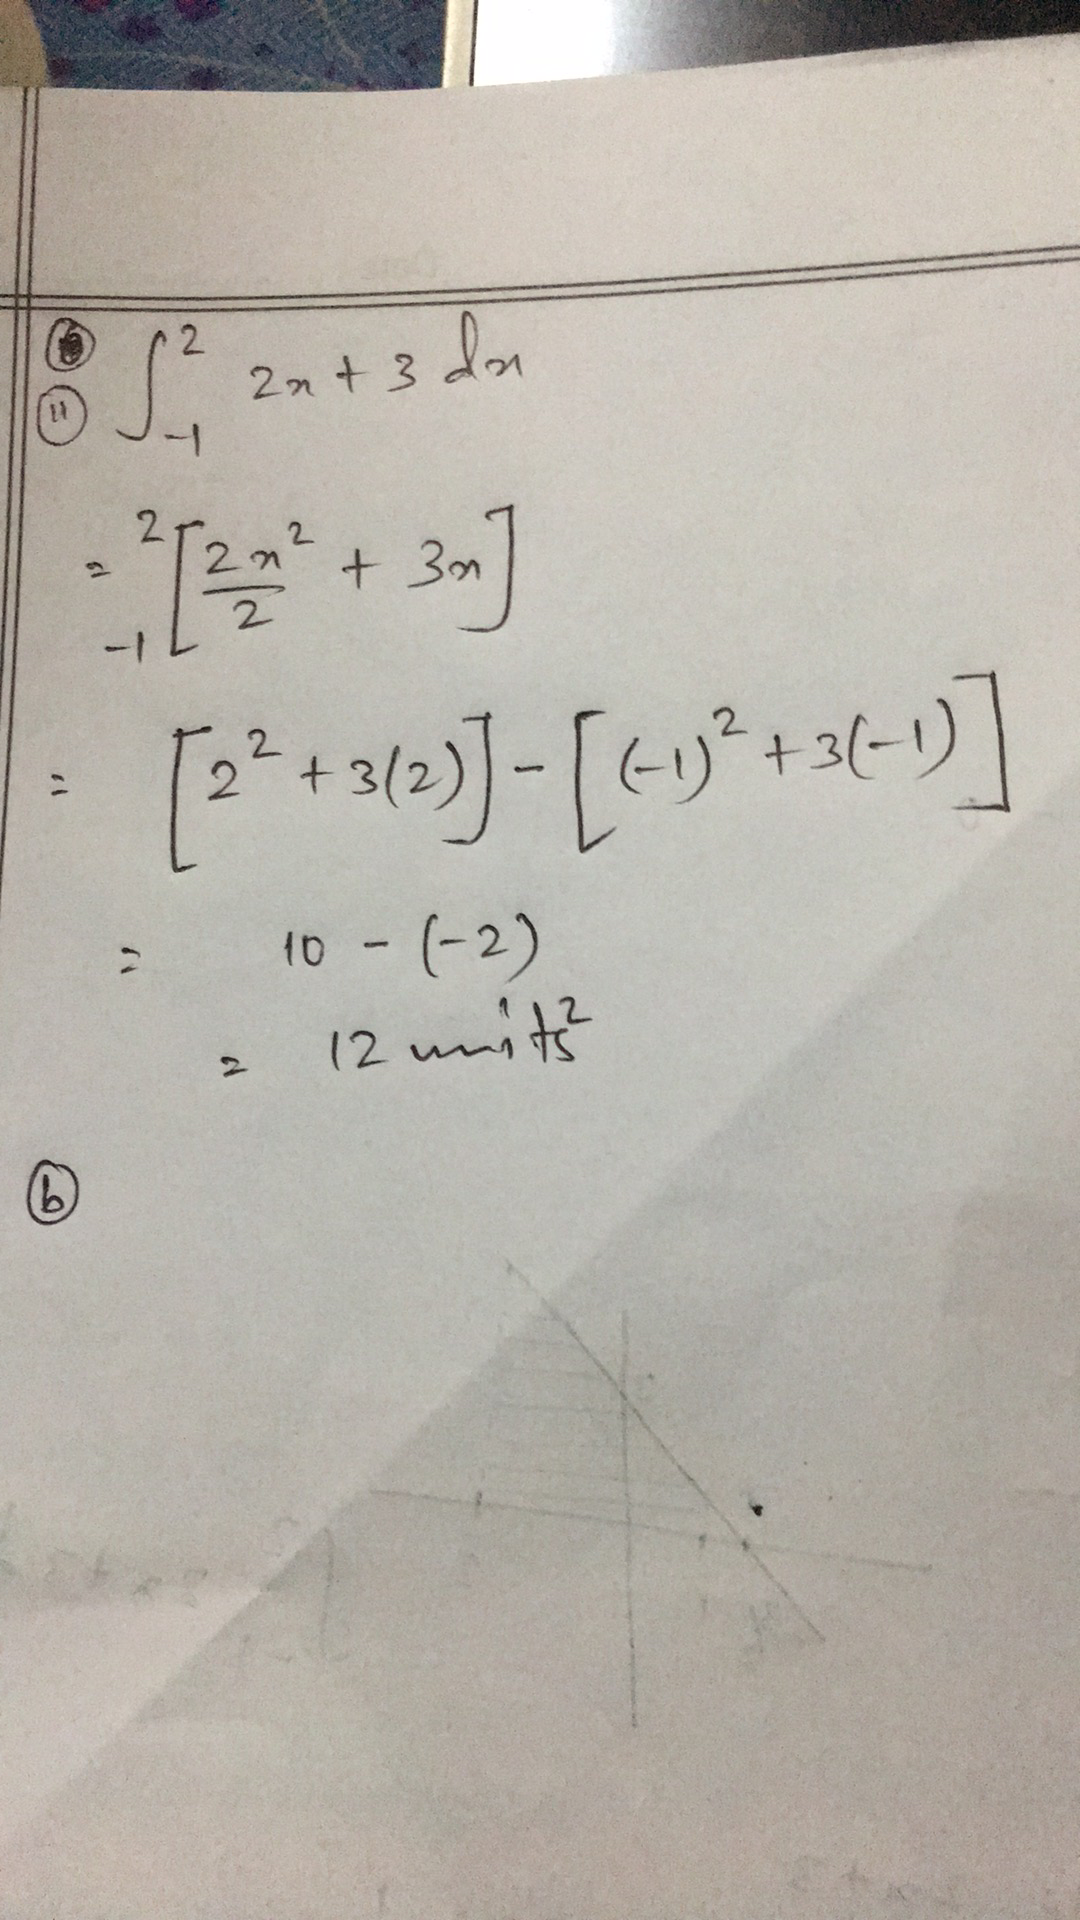 (11) ∫₋₁² 2x + 3 dx
= ²₋₁[2x²/2 + 3x]
= [2² + 3(2)] - [(-1)² + 3(-1)]
= 10 - (-2)
= 12 units²
(b)